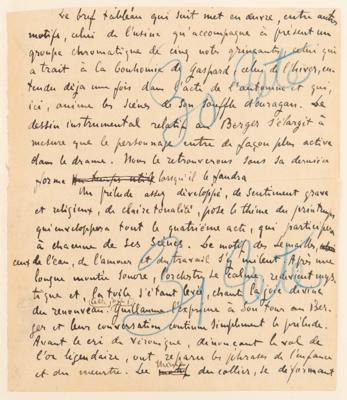 Le bref tableau qui suit met en œuvre, entre autres
motifs, celui de l'usine qu'accompagne à présent un
groupe chromatique de cinq notes grinçantes, celui qui
a trait à la bonhomie de Gaspard, celui de l'hiver, en-
tendu déjà une fois dans l'acte de l'automne et qui,
ici, anime les scènes de son souffle d'ouragan. Le
dessin instrumental relatif au Berger s'élargit à
mesure que le personnage entre de façon plus active
dans le drame. Nous le retrouverons sous sa dernière
forme lorsqu'il le faudra
Un prélude assez développé, de sentiment grave
et religieux, de claire tonalité, pose le thème du printemps
qui enveloppera tout le quatrième acte, qui participera
à chacune de ses scènes. Le motif des semailles,
ceux de l'eau, de l'amour et du travail s'y mêlent. Après une
longue montée sonore, l'orchestre se calme, redevient mys-
tique et, la toile s'étant levée, chante la joie divine
du renouveau. Guillaume exprime à son tour au Ber-
ger et leur conversation continue simplement le prélude.
Avant le cri de Véronique, dénonçant le vol de
l'or légendaire, ont reparu les phrases de l'enfance
et du meurtre. Le même du collier, se déformant